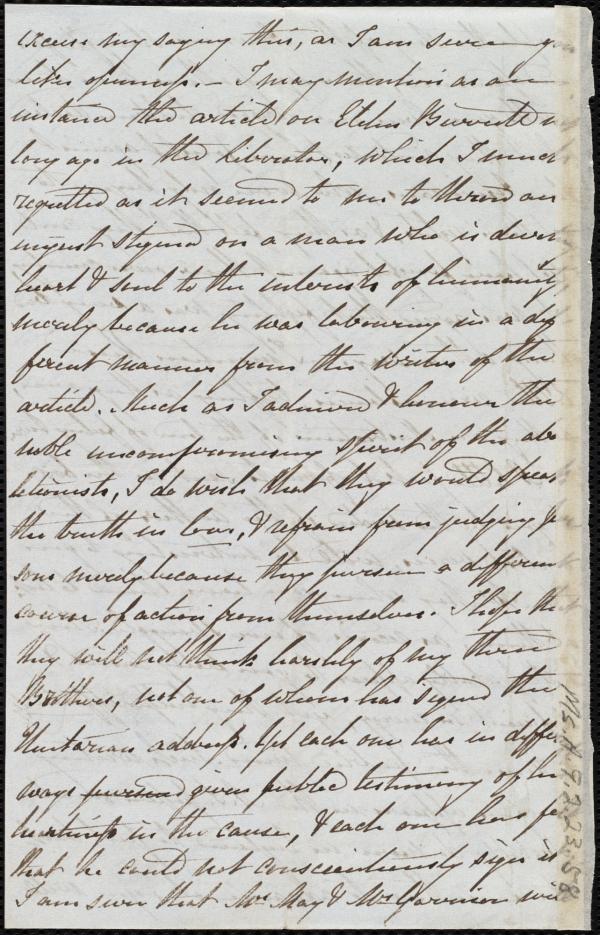 excuse my saying this, as I am sure y
likes openness. – I may mention as an
instance the article on Elihu Burritt n
long ago in the Liberator, which I much
regretted as it seemed to me to throw an
unjust stigma on a man who is devo
heart & soul to the interests of humanity
merely because he was labouring in a dif
ferent manner from the writer of the
article. Much as I admire & honour the
noble uncompromising spirit of the abo
litionists, I do wish that they would speak
the truth in love, & refrain from judging p
sons merely because they pursue a different
course of action from themselves. I hope that
they will not think harshly of my three
Brothers, not one of whom has signed the
Unitarian address. Yet each one has in diffe
ways pursued given public testimony of his
heartiness in the cause, & each one has fe
that he could not conscientiously sign it
I am sure that Mr May & Mr Garrison will
Ms. A. 9. 2. 23. 58